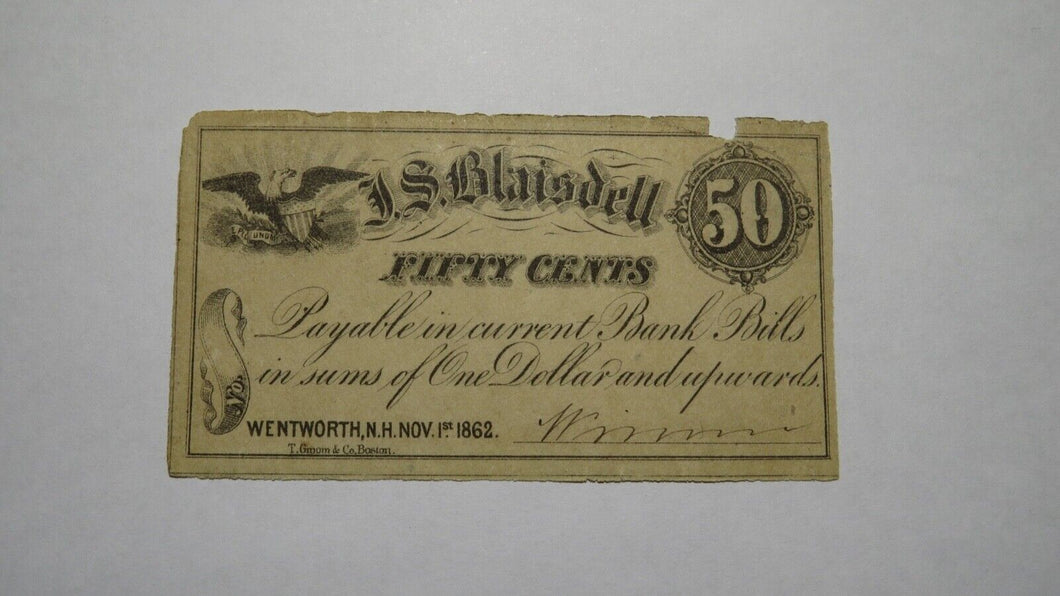 J.S. Blaisdell
50
FIFTY CENTS
Payable in current Bank Bills
in sums of One Dollar and upwards.
No.
WENTWORTH, N.H. NOV. 1st 1862.
T. Groom & Co. Boston.